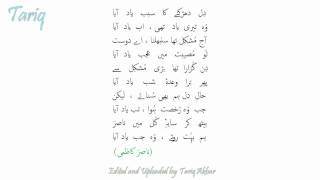 Tariq
دل دھڑکنے کا سبب یاد آیا
وہ تیری یاد تھی ، اب یاد آیا
آج مُشکل تھا سنبھلنا ، اے دوست
تُو مُصیبت میں عجب یاد آیا
دِن گُزارا تھا بڑی مُشکل سے
پھر ترا وعدۂ شب یاد آیا
حالِ دل ہم بھی سُناتے ، لیکن
جب وُہ رُخصت ہُوا ، تب یاد آیا
بیٹھ کر سایۂ گل میں ناصر
ہم بہت روئے ، وُہ جب یاد آیا
(ناصر کاظمی)
Edited and Uploaded by Tariq Akbar